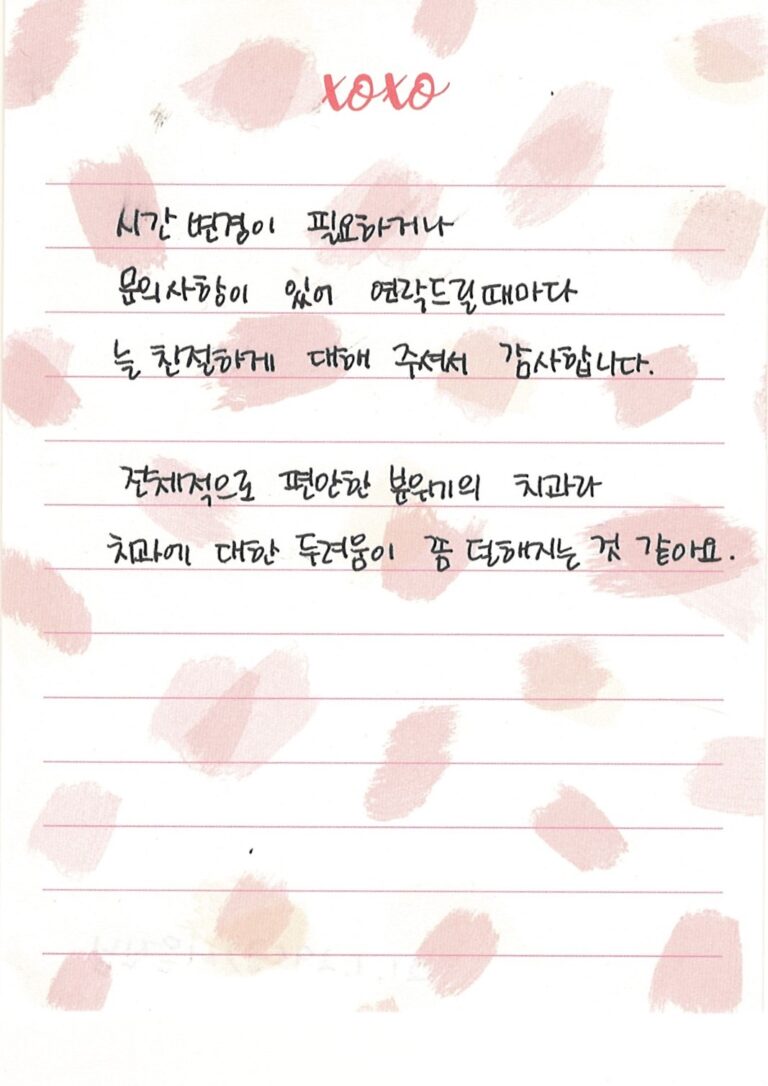 xoxo
시간 변경이 필요하거나
문의사항이 있어 연락드릴때마다
늘 친절하게 대해 주셔서 감사합니다.
전체적으로 편안한 분위기의 치과라
치과에 대한 두려움이 쫌 덜해지는 것 같아요.